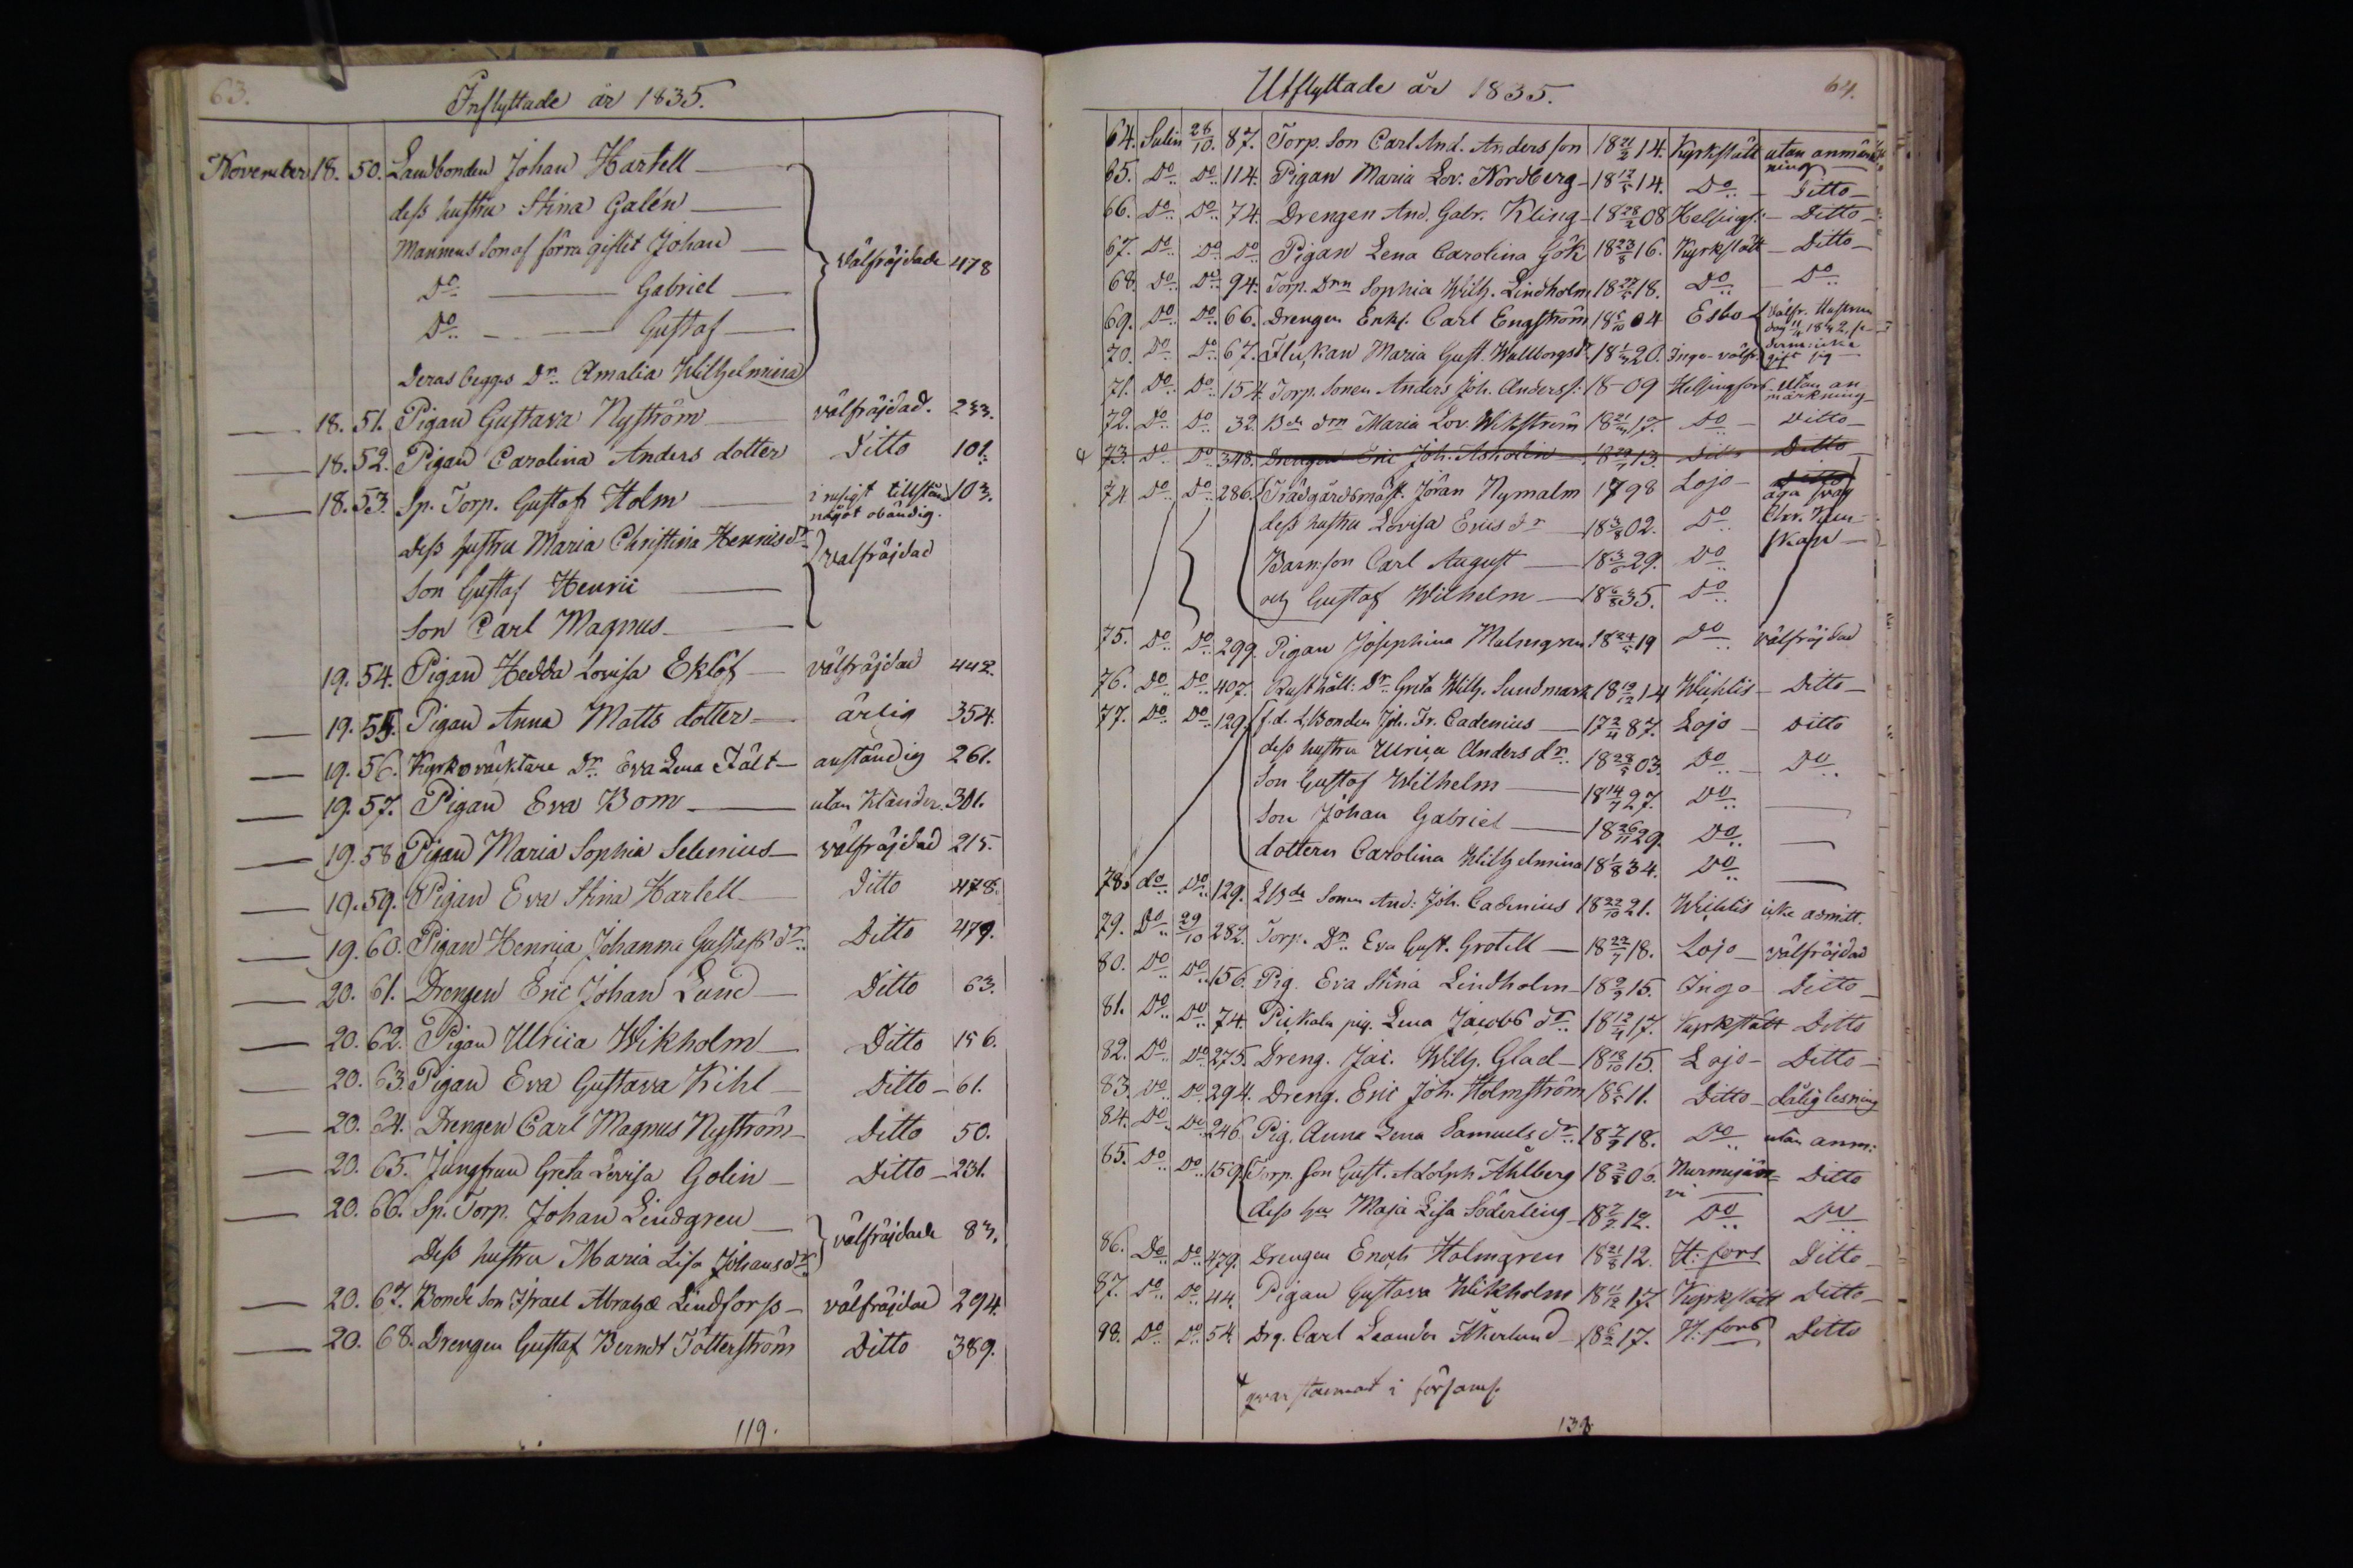 63.
Inflyttade år 1835.
November 18. 50. Landbonden Johan Hartell
dess hustru Stina Galén
Mannens son af förra giftet Johan
Do Gabriel
Do Gustaf
välfräjdade 478
Deras begges Dr. Amalia Wilhelmina
18. 51. Pigan Gustava Nyström välfräjdad. 233.
18. 52. Pigan Carolina Anders dotter Ditto 101.
18. 53. Sp. Torp. Gustaf Holm i rusigt tillstånd något obändig. 103.
dess hustru Maria Christina Henricsdr.
Son Gustaf Henric
välfräjdad
Son Carl Magnus
19. 54. Pigan Hedda Lovisa Eklöf välfräjdad 442.
19. 55. Pigan Anna Matts dotter ärlig 354.
19. 56. Kyrkoväcktare Dr. Eva Lena Fält anständig 261.
19. 57. Pigan Eva Bom utan klander. 301.
19. 58 Pigan Maria Sophia Selenius välfräjdad 215.
19. 59. Pigan Eva Stina Hartell Ditto 478.
19. 60. Pigan Henrica Johanna Gustafs dr. Ditto 479.
20. 61. Drengen Eric Johan Lund Ditto 63.
20. 62. Pigan Ulrica Wikholm Ditto 156.
20. 63. Pigan Eva Gustava Kihl Ditto 61.
20. 64. Drengen Carl Magnus Nyström Ditto 50.
20. 65. Jungfrun Greta Lovisa Golin Ditto 231.
20. 66. Sp. Torp. Johan Lindgren
välfräjdade 83.
Dess hustru Maria Lisa Johansdr.
20. 67. Bonde Son Israel Abrahæ Lindforss välfräjdad 294.
20. 68. Drengen Gustaf Berndt Tötterström Ditto 389.
119.
Utflyttade år 1835.
64.
64. 28/10. 87. Torp. Son Carl And. Andersson 18 21/2 14. Kyrkslätt utan anmärkning
65. Do Do 114. Pigan Maria Lov. Nordberg 18 12/5 14. Do Ditto
66. Do Do 74. Drengen And. Gabr. Kling 18 28/2 08 Helsingf. Ditto
67. Do Do Do Pigan Lena Carolina Gök 18 23/8 16. Kyrkslätt Ditto
68. Do Do 94. Torp. Drn Sophia Wilh. Lindholm 18 27/5 18. Do Do
69. Do Do 66. Drengen Enkl. Carl Engström 18 5/10 04 Esbo välfr. Hustrun
70. Do Do 67. Flickan Maria Gust. Wallborgsdr 18 20. Inga välfr.
71. Do Do 154. Torp. Sonen Anders Joh. Anderss: 18-09 Helsingfors utan anmärkning
72. Do Do 32. Bde drn Maria Lov. Wikström 18 17. Do Ditto
73. Do Do 348. Drengen Eric Joh. Asholin 18 13. Ditto Ditto
74 Do Do 286. Trädgårdsmäst. Jöran Nymalm 1798 Lojo Ditto äga svag
dess hustru Lovisa Erics dr 18 3/8 02. Do Chr. kunskap
Barn: son Carl August 18 29. Do
och Gustaf Wilhelm 18 35. Do
75. Do Do 299. Pigan Josephina Malmgren 18 24/5 19 Do välfräjdad
76. Do Do 407. Rusthåll: Dr. Greta Wilh. Sundmark 18 19/12 14 Wichtis Ditto
77. Do Do 129. f.d. L.Bonden Joh. Fr. Cadenius 17 2/11 87. Lojo Ditto
dess hustru Ulrica Anders dr. 18 28/5 03. Do Do
Son Gustaf Wilhelm 18 14/7 27. Do
Son Johan Gabriel 18 26/11 29. Do
dottern Carolina Wilhelmina 18 1/8 34. Do
78. do Do 129. LBde Sonen And. Joh. Cadenius 18 22/10 21. Wichtis icke admitt.
79. Do 29/10 282. Torp. Dr. Eva Gust. Grotell 18 22/7 18. Lojo välfräjdad
80. Do Do 156. Pig. Eva Stina Lindholm 18 9/9 15. Ingo Ditto
81. Do Do 74. Pickala pig. Lena Jacobs dr. 18 12/4 17. Kyrkslätt Ditto
82. Do Do 275. Dreng. Jac. Wilh. Glad 18 18/10 15. Lojo Ditto
83. Do Do 294. Dreng. Eric Joh. Holmström 18 6/5 11. Ditto dålig lesning
84. Do Do 246 Pig. Anna Lena Samuels dr. 18 7/9 18. Do utan anm:
85. Do Do 159. Torp. son Gust. Adolph Ahlberg 18 2/8 06. Nurmijärvi Ditto
dess hu Maja Lisa Söderling 18 7/7 12. Do Do
86. Do Do 479. Drengen Enoch Holmgren 18 21/8 12. H: fors Ditto
87. Do Do 44. Pigan Gustava Wikholm 18 11/12 17. Kyrkslätt Ditto
98. Do Do 54. Drg. Carl Leander Åkerlund 18 6/2 17. H: fors Ditto
qvarstannat i församl.
138